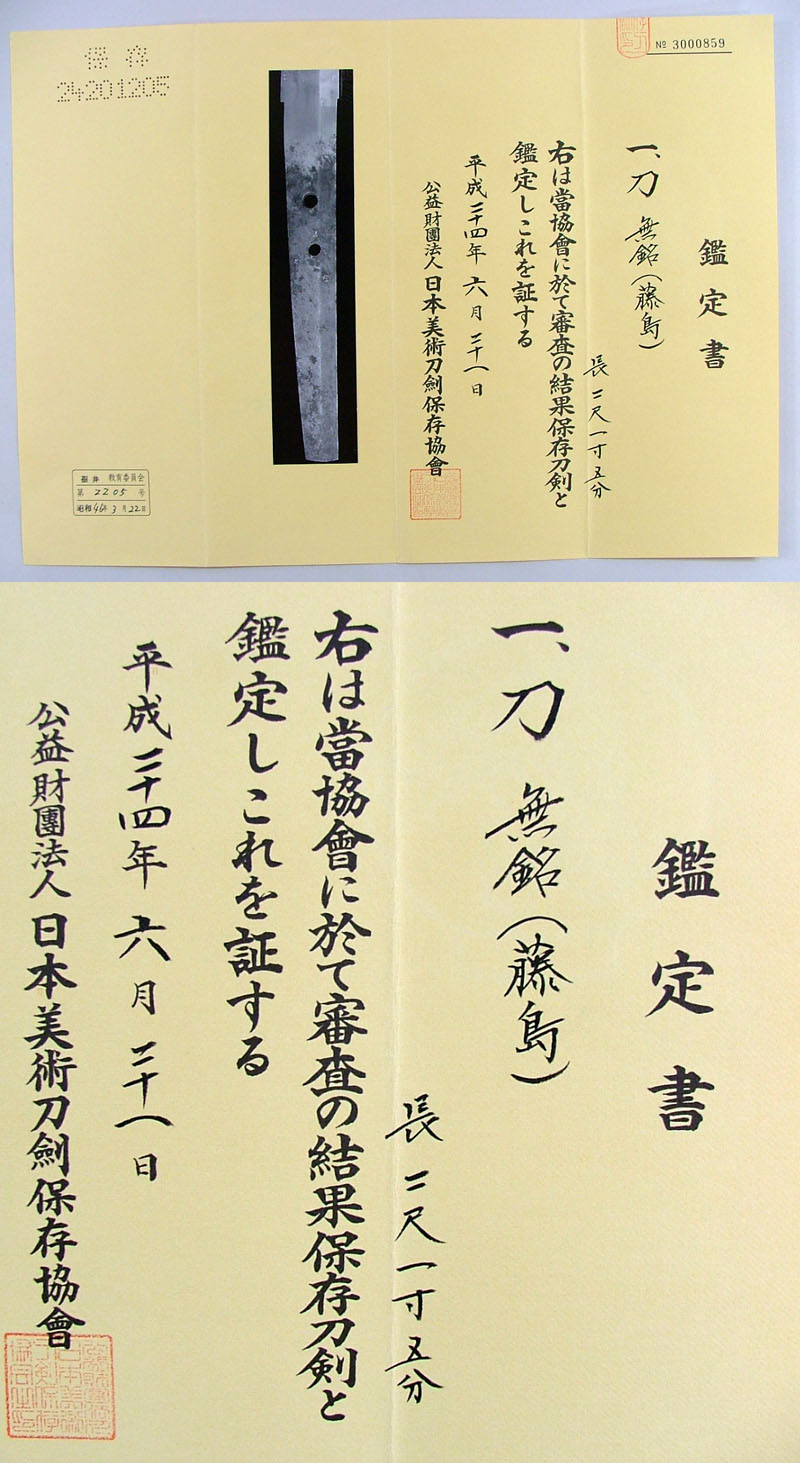 № 3000859
鑑定書
一、刀 無銘(藤島)
長二尺一寸五分
右は當協會に於て審査の結果保存刀剣と
鑑定しこれを証する
平成二十四年六月二十一日
公益財團法人日本美術刀劍保存協會
保存
24201205
教育委員会
第2205号
昭和46年3月22日
鑑定書
一、刀 無銘(藤島)
長二尺一寸五分
右は當協會に於て審査の結果保存刀剣と
鑑定しこれを証する
平成二十四年六月二十一日
公益財團法人日本美術刀劍保存協會